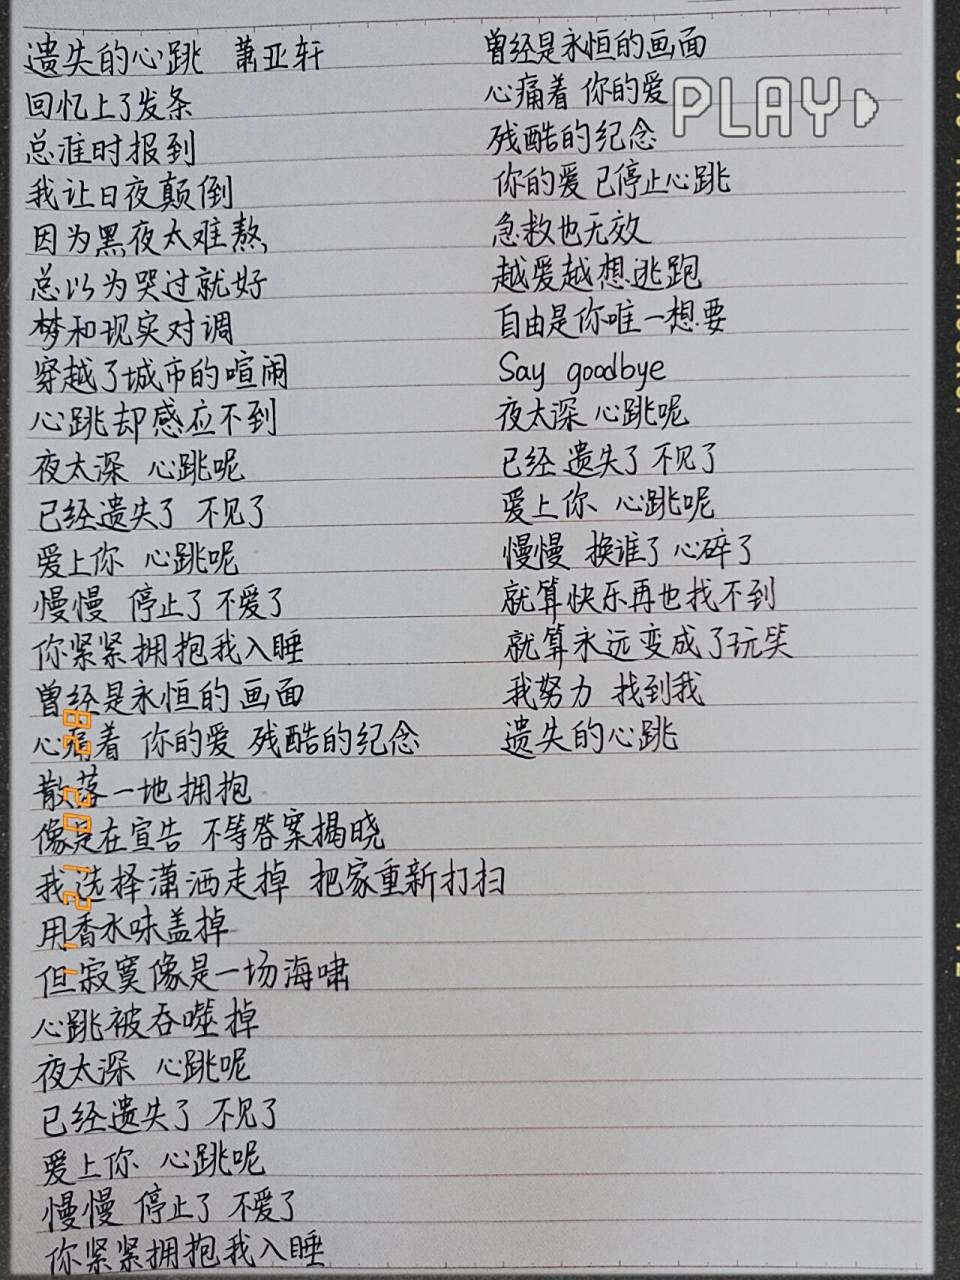 遗失的心跳 萧亚轩
回忆上了发条
总准时报到
我让日夜颠倒
因为黑夜太难熬
总以为哭过就好
梦和现实对调
穿越了城市的喧闹
心跳却感应不到
夜太深 心跳呢
已经遗失了 不见了
爱上你 心跳呢
慢慢 停止了 不爱了
你紧紧拥抱我入睡
曾经是永恒的画面
心痛着 你的爱 残酷的纪念
散落一地拥抱
像是在宣告 不等答案揭晓
我选择潇洒走掉 把家重新打扫
用香水味盖掉
但寂寞像是一场海啸
心跳被吞噬掉
夜太深 心跳呢
已经遗失了 不见了
爱上你 心跳呢
慢慢 停止了 不爱了
你紧紧拥抱我入睡
曾经是永恒的画面
心痛着 你的爱
残酷的纪念
你的爱 已停止心跳
急救也无效
越爱越想逃跑
自由是你唯一想要
Say goodbye
夜太深 心跳呢
已经遗失了 不见了
爱上你 心跳呢
慢慢 换谁了 心碎了
就算快乐再也找不到
就算永远变成了玩笑
我努力 找到我
遗失的心跳
PLAY